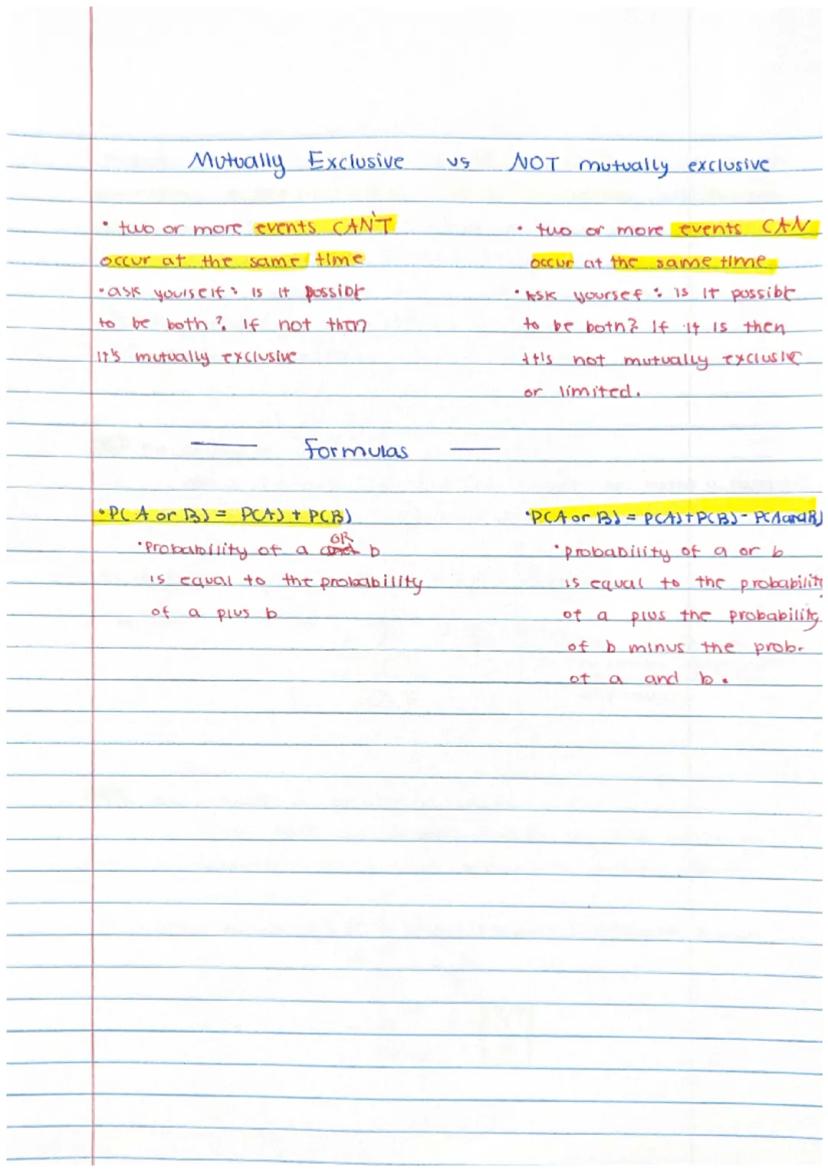 Mutually Exclusive vs NOT mutually exclusive
• two or more events CAN'T
occur at the same time
• ask yourself: is it possible
to be both? If not then
it's mutually exclusive
• two or more events CAN
occur at the same time
• Ask yourself: is it possible
to be both? If it is then
it's not mutually exclusive
or limited.
Formulas
• P(A or B) = P(A) + P(B)
• Probability of a or b
is equal to the probability
of a plus b
• P(A or B) = P(A) + P(B) - P(A and B)
• probability of a or b
is equal to the probability
of a plus the probability
of b minus the prob.
of a and b.